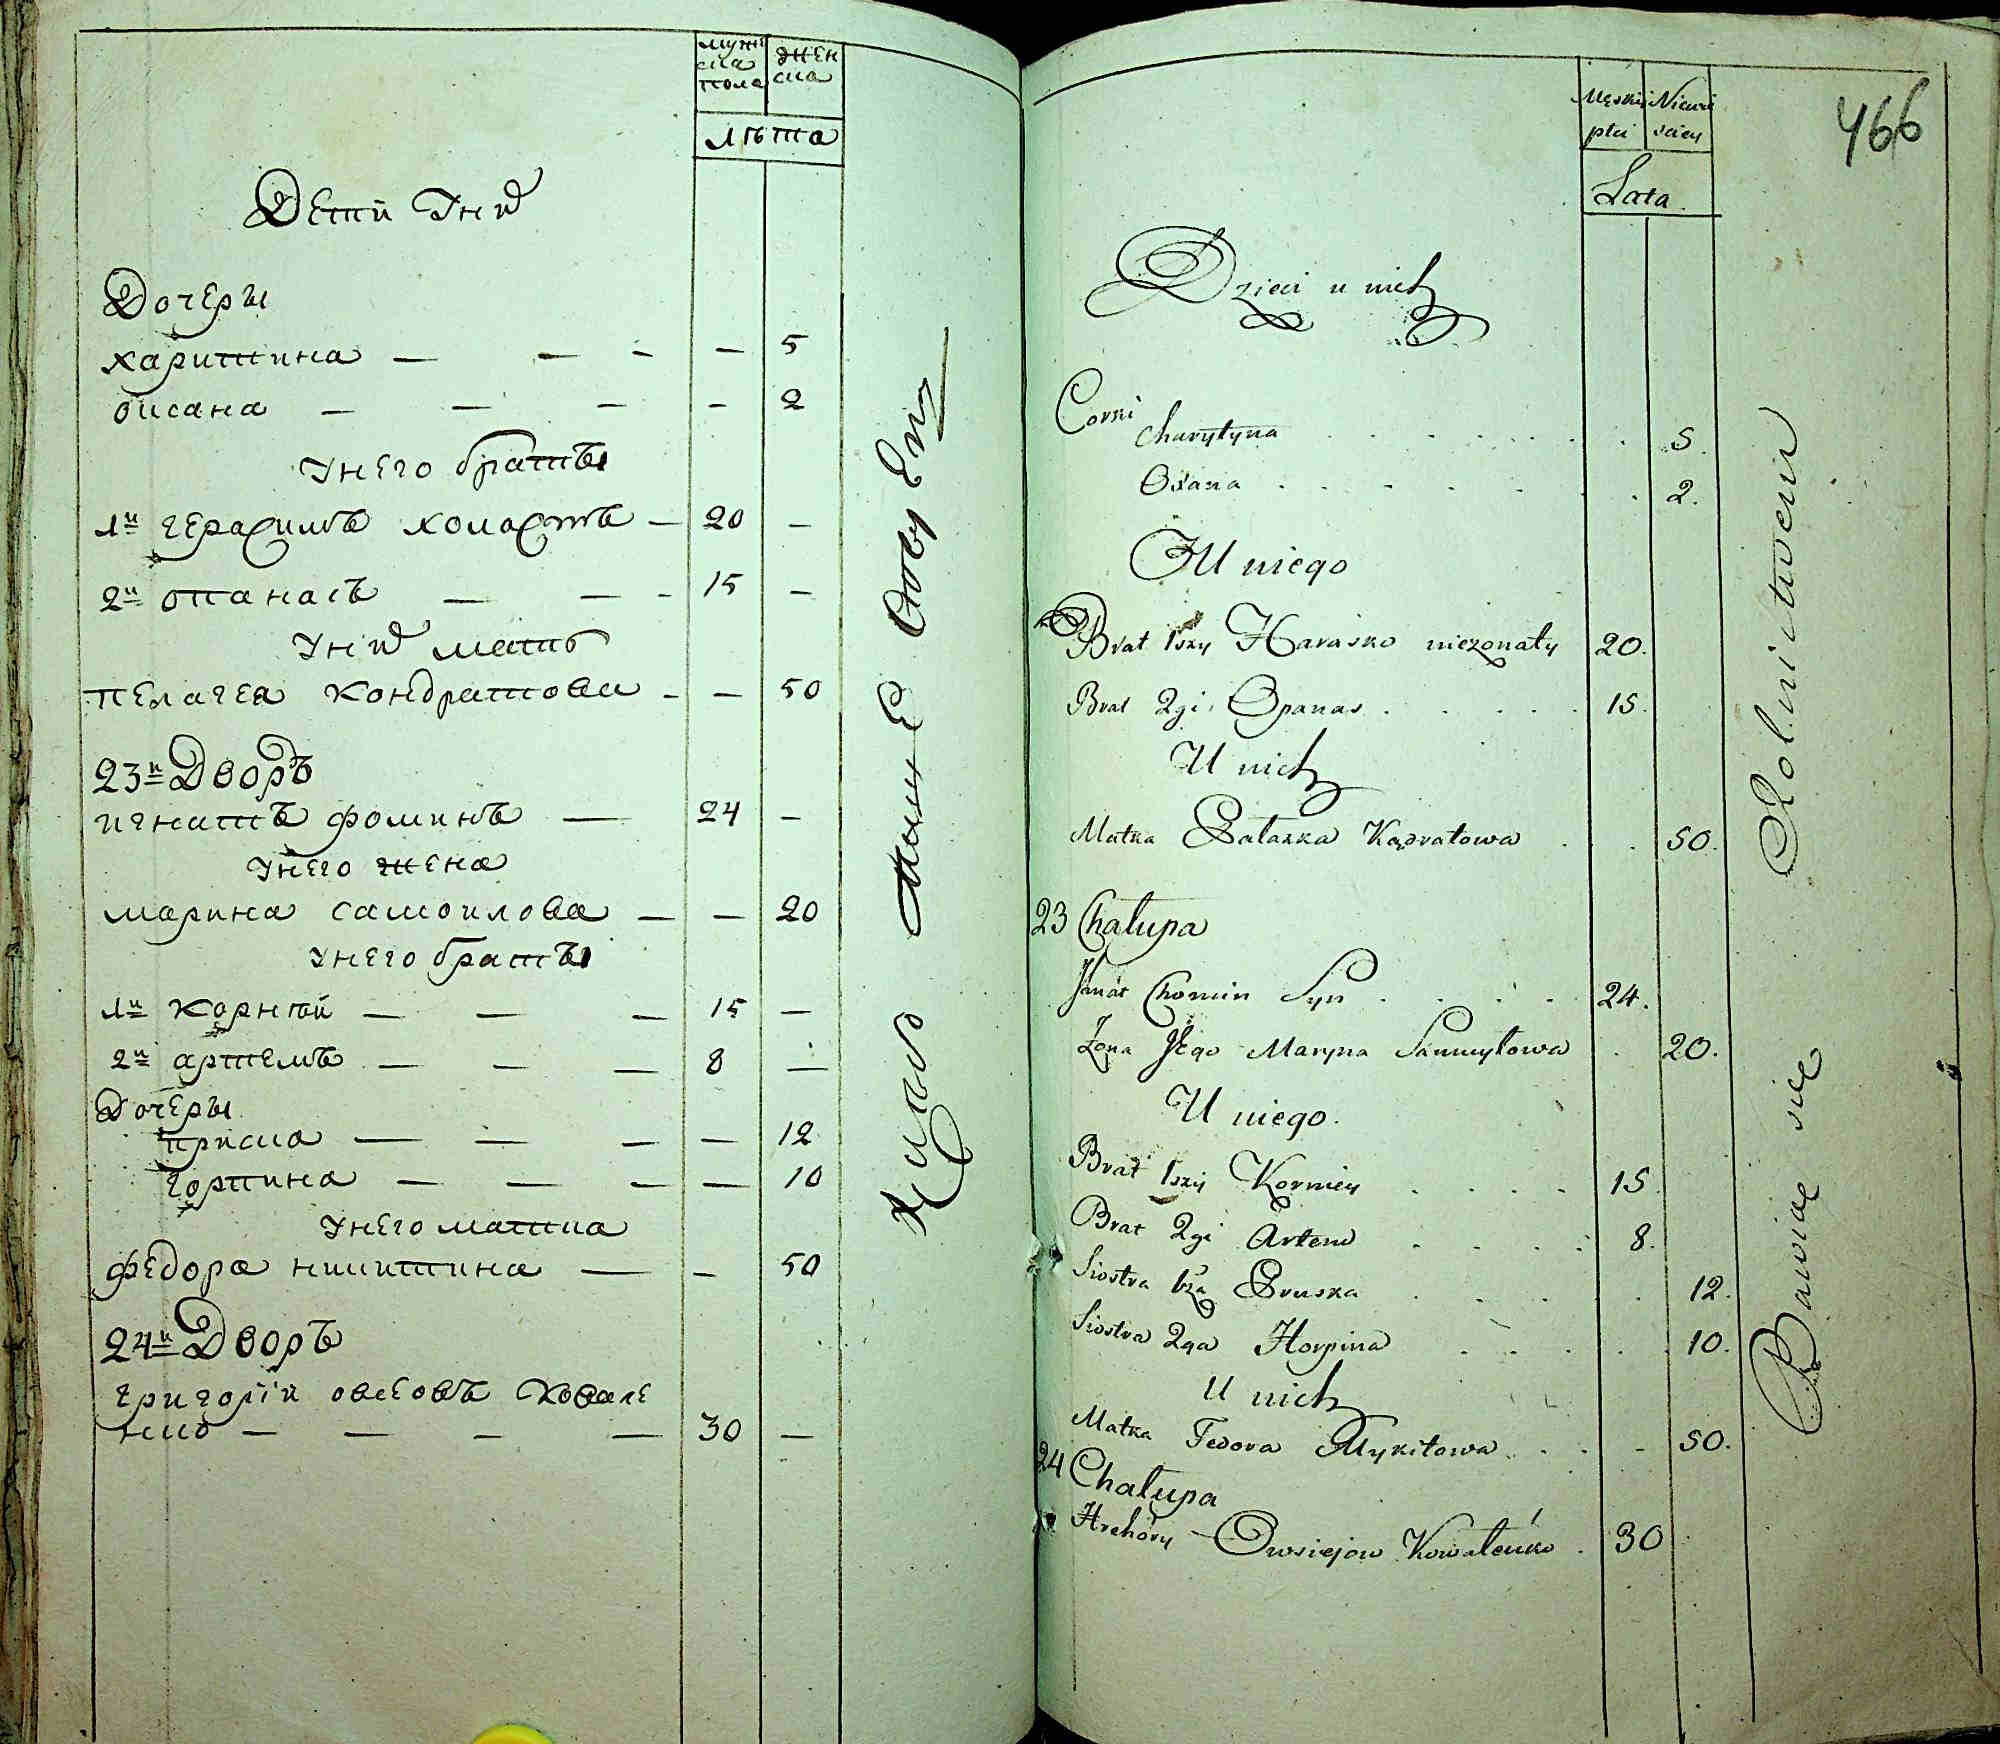 мужеска пола
женска
лѣта
Дети У них
Дочеры
харитина — — — — 5
оксана — — — — 2
У него братъя
1й герасимъ холостъ — 20 —
2й опанасъ — — — 15 —
У них мать
пелагея кондратова — — 50
23й Дворъ
игнатъ фоминъ — 24 —
У него жена
марина самоилова — — 20
У него братъя
1й корнѣй — — — 15 —
2й артемъ — — — 8 —
Дочеры
приска — — — — 12
горпина — — — — 10
У него матка
федора никитина — — 50
24й Дворъ
григорій овсеовъ ковале
нко — — — — 30 —
466
Męskiej płci
Niewieściey
Lata.
Dzieci u nich
Corki
Charytyna 5.
Oxana 2.
U niego
Brat 1szy Harasko niezonaty 20.
Brat 2gi Opanas 15.
U nich
Matka Pałazka Kądratowa 50.
23 Chałupa
Jhnat Chomin Syn 24.
Żona Jego Maryna Samuyłowa 20.
U niego.
Brat 1szy Korniey 15
Brat 2gi Artem 8.
Siostra 1sza Pruska 12.
Siostra 2ga Horpina 10.
U nich
Matka Fedora Mykitowa 50.
24 Chałupa
Hrehory Owsiejow Kowaleńko 30
Bawiąc się Rolnictwem